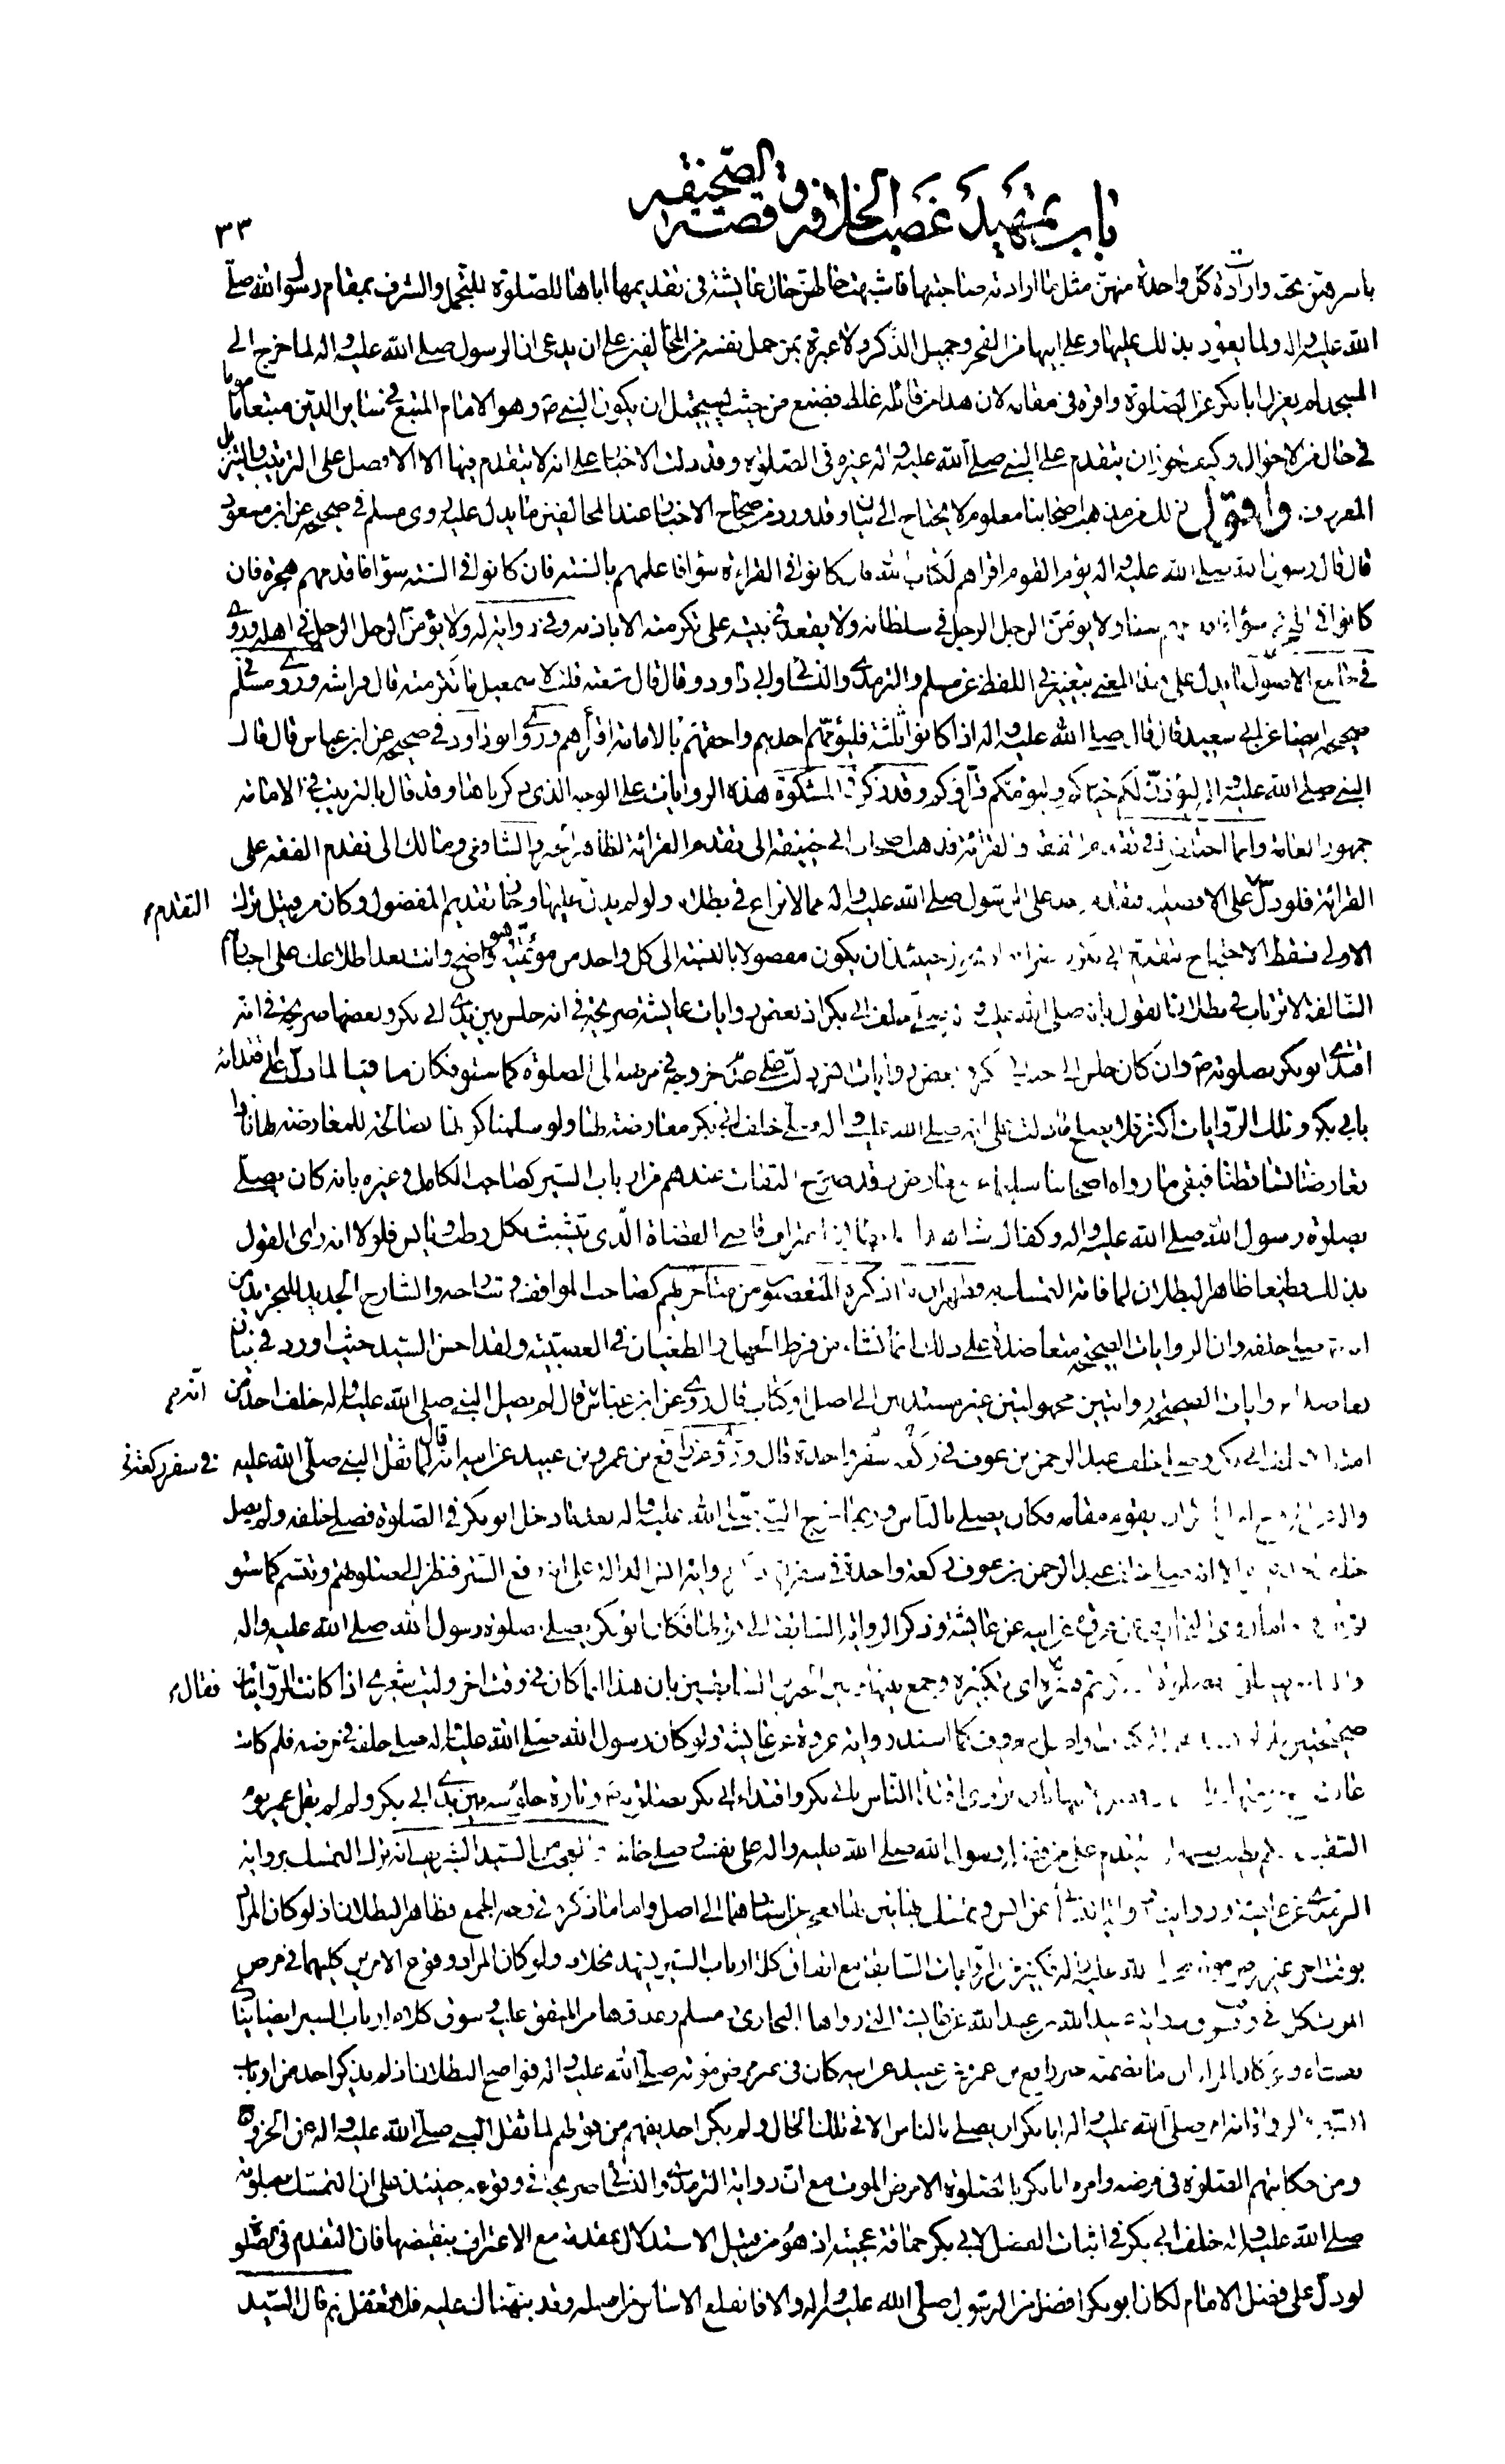 باب تمهيد غصب الخلافة وقصة الصحيفة
٣٣
باسرهن بحقه وارادة كل واحدة منهن مثل ما ارادته صاحبتها فاشبهت حالهن حال عايشة فى تقديمها اباها للصلوة للتجمل والشرف بمقام رسول الله صلى
الله عليه واله ولما يعود بذلك عليها وعلى ابيها من الفخر وجميل الذكر ولا عبرة بمن حمل نفسه من المخالفين على ان يدعى ان الرسول صلى الله عليه واله لما خرج الى
المسجد لم يعزل ابا بكر عن الصلوة واقره فى مقامه لان هذا من قائله غلط فضيع من حيث يستحيل ان يكون النبى ص وهو الامام المتبع فى سائر الدين متبعا ماموما
فى حال من الاحوال وكيف يجوز ان يتقدم على النبى صلى الله عليه واله غيره فى الصلوة وقد دلت الاخبار على انه لا يتقدم فيها الا الافضل على الترتيب والتنزيل
المعروف واقول ذلك من مذهب اصحابنا معلوم لا يحتاج الى بيان وقد ورد من صحاح الاخبار عند المخالفين ما يدل عليه روى مسلم فى صحيحه عن ابن مسعود
قال قال رسول الله صلى الله عليه واله يؤم القوم اقراهم لكتاب الله فان كانوا فى القراءة سواء فاعلمهم بالسنة فان كانوا فى السنة سواء فاقدمهم هجرة فان
كانوا فى الهجرة سواء فاقدمهم سنا ولا يؤمن الرجل الرجل فى سلطانه ولا يقعد فى بيته على تكرمته الا باذنه وفى رواية له ولا يؤمن الرجل الرجل فى اهله وروى
فى جامع الاصول ما يدل على هذا المعنى بتغيير فى اللفظ عن مسلم والترمذى والنسائى وابى داود وقال قال شعبة قلت لاسمعيل ما تكرمته قال فراشه وروى مسلم فى
صحيحه ايضا عن ابى سعيد قال قال صلى الله عليه واله اذا كانوا ثلثة فليؤمهم احدهم واحقهم بالامامة اقراهم وروى ابو داود فى صحيحه عن ابن عباس قال قال
النبى صلى الله عليه واله ليؤذن لكم خياركم وليؤمكم قراؤكم وقد ذكر فى المشكوة هذه الروايات على الوجه الذى ذكرناها وقد قال بالترتيب فى الامامة
جمهور العامة وانما اختلفوا فى تقديم الفقه والقرائة فذهب اصحاب ابى حنيفة الى تقديم القرائة لظاهر الخبر والشافعى ومالك الى تقديم الفقه على
القرائة فلو دل على الافضلية فتقديمه على الرسول صلى الله عليه واله مما لا نزاع فى بطلانه ولو لم يدل عليها وجاز تقديم المفضول وكان من قبيل ترك
التقدم
الاولى فسقط الاحتجاج حينئذ ان يكون مفضولا بالنسبة الى كل واحد من مؤتميه وهو واضح وانت بعد اطلاعك على اخبارهم
السالفة لا ترتاب فى بطلان القول بان صلى الله عليه واله صلى خلف ابى بكر اذ بعض روايات عايشة صريحة فى انه جلس بين يدى ابى بكر وبعضها صريحة فى انه
اقتدى ابو بكر بصلوته ص وان كان جلس الى جنب ابى بكر وبعض روايات
بابى بكر وتلك الروايات اكثر فلا يصلح ما دلت على انه صلى الله عليه واله صلى خلف ابى بكر معارضة لها ولو سلمنا كونها صالحة للمعارضة لها فاذا
تعارضتا تساقطتا فبقى ما رواه اصحابنا سليما عن معارض وقد صرح الثقات عندهم من ارباب السير كصاحب الكامل وغيره بانه كان يصلى
بصلوة رسول الله صلى الله عليه واله وكفاك شاهدا اعتراف قاضى القضاة الذى يتشبث بكل رطب ويابس فلولا انه راى القول
بذلك فظيعا ظاهر البطلان لما فاته التمسك به وظهر ان ما ذكره المتعصبون من متاخريهم كصاحب المواقف وشارحه والشارح الجديد للتجريد من
انه صلى خلفه وان الروايات الصحيحة متعاضدة على ذلك انما نشاء من فرط الجهل والطغيان فى العصبية ولقد احسن السيد حيث اورد فى بيان
الروايات الصحيحة روايتين مجهولتين غير مستندين الى اصل او كتاب قال روى عن ابن عباس قال لم يصل النبى صلى الله عليه واله خلف احد من
انه ص
امته الا خلف ابى بكر وصلى خلف عبد الرحمن بن عوف فى سفر ركعة واحدة قال وروى عن رافع بن عمرو بن عبيد عن ابيه انه قال لما ثقل النبى صلى الله عليه
فى سفر ركعة
واله عن الخروج امر ابا بكر ان يقوم مقامه فكان يصلى بالناس وربما خرج النبى صلى الله عليه واله بعد ما دخل ابو بكر فى الصلوة فصلى خلفه ولم يصل
خلف احد غيره الا انه صلى خلف عبد الرحمن بن عوف ركعة واحدة فى سفر ثم رواية انس الدالة على انه رفع الستر فنظر الى صلوتهم وتبسم كما سبق
واما روى البخارى عن عروة عن ابيه عن عايشة وذكر الرواية السابقة الى قولها فكان ابو بكر يصلى بصلوة رسول الله صلى الله عليه واله
والناس يصلون بصلوة ابى بكر ثم فسره اى بتكبيره وجمع بينهما وبين الخبرين السابقين بان هذا انما كان فى وقت اخر وليت شعرى اذا كانت الروايتان
فقال
صحيحتين كما اسند رواية عروة عن عايشة ولو كان رسول الله صلى الله عليه واله صلى خلفه فى مرضه فلم كانت
اقتداء الناس بابى بكر واقتداء ابى بكر بصلوته ص وتارة جلوسه بين يدى ابى بكر ولم لم يقل عمر يوم
السقيفة يتقدم على من قدمه رسول الله صلى الله عليه واله على نفسه وصلى خلفه والعجب من السيد الشريف انه ترك التمسك برواية
الترمذى عن عايشة ورواية النسائى عن انس وتمسك واما ما ذكره فى وجه الجمع فظاهر البطلان اذ لو كان المراد
بوقت اخر غير مرض موته صلى الله عليه واله الروايات السابقة مع اتفاق كلمة ارباب السير يشهد بخلافه ولو كان المراد وقوع الامرين كليهما فى مرض
الموت رواية عبيد الله بن عبد الله عن عايشة التى رواها البخارى ومسلم وعدوها من المتفق عليه وسوق كلام ارباب السير ايضا
كان المراد ان ما تضمنه خبر رافع بن عمرو بن عبيد عن ابيه كان فى غير مرض موته صلى الله عليه واله فواضح البطلان اذ لم يذكر احد من ارباب
السير والرواة انه امر صلى الله عليه واله ابا بكر ان يصلى بالناس الا فى تلك الحال ولم يكن احد يفهم من قولهم لما ثقل النبى صلى الله عليه واله عن الخروج
ومن حكايتهم الصلوة فى مرضه وامره ابا بكر بالصلوة الا مرض الموت مع ان رواية الترمذى والنسائى صريحة فى وقوعه حينئذ على ان التمسك بصلوته
صلى الله عليه واله خلف ابى بكر فى اثبات الفضل لابى بكر حماقة عجيبة اذ هو من قبيل الاستدلال بمقدمة مع الاعتراف بنقيضها فان التقدم فى الصلوة
لو دل على فضل الامام لكان ابو بكر افضل من الرسول صلى الله عليه واله والا فانقلع الاساس من اصله وقد نبهناك عليه فلا تغفل ثم قال السيد